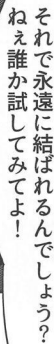 それで永遠に結ばれるんでしょう？
ねぇ誰か試してみてよ！